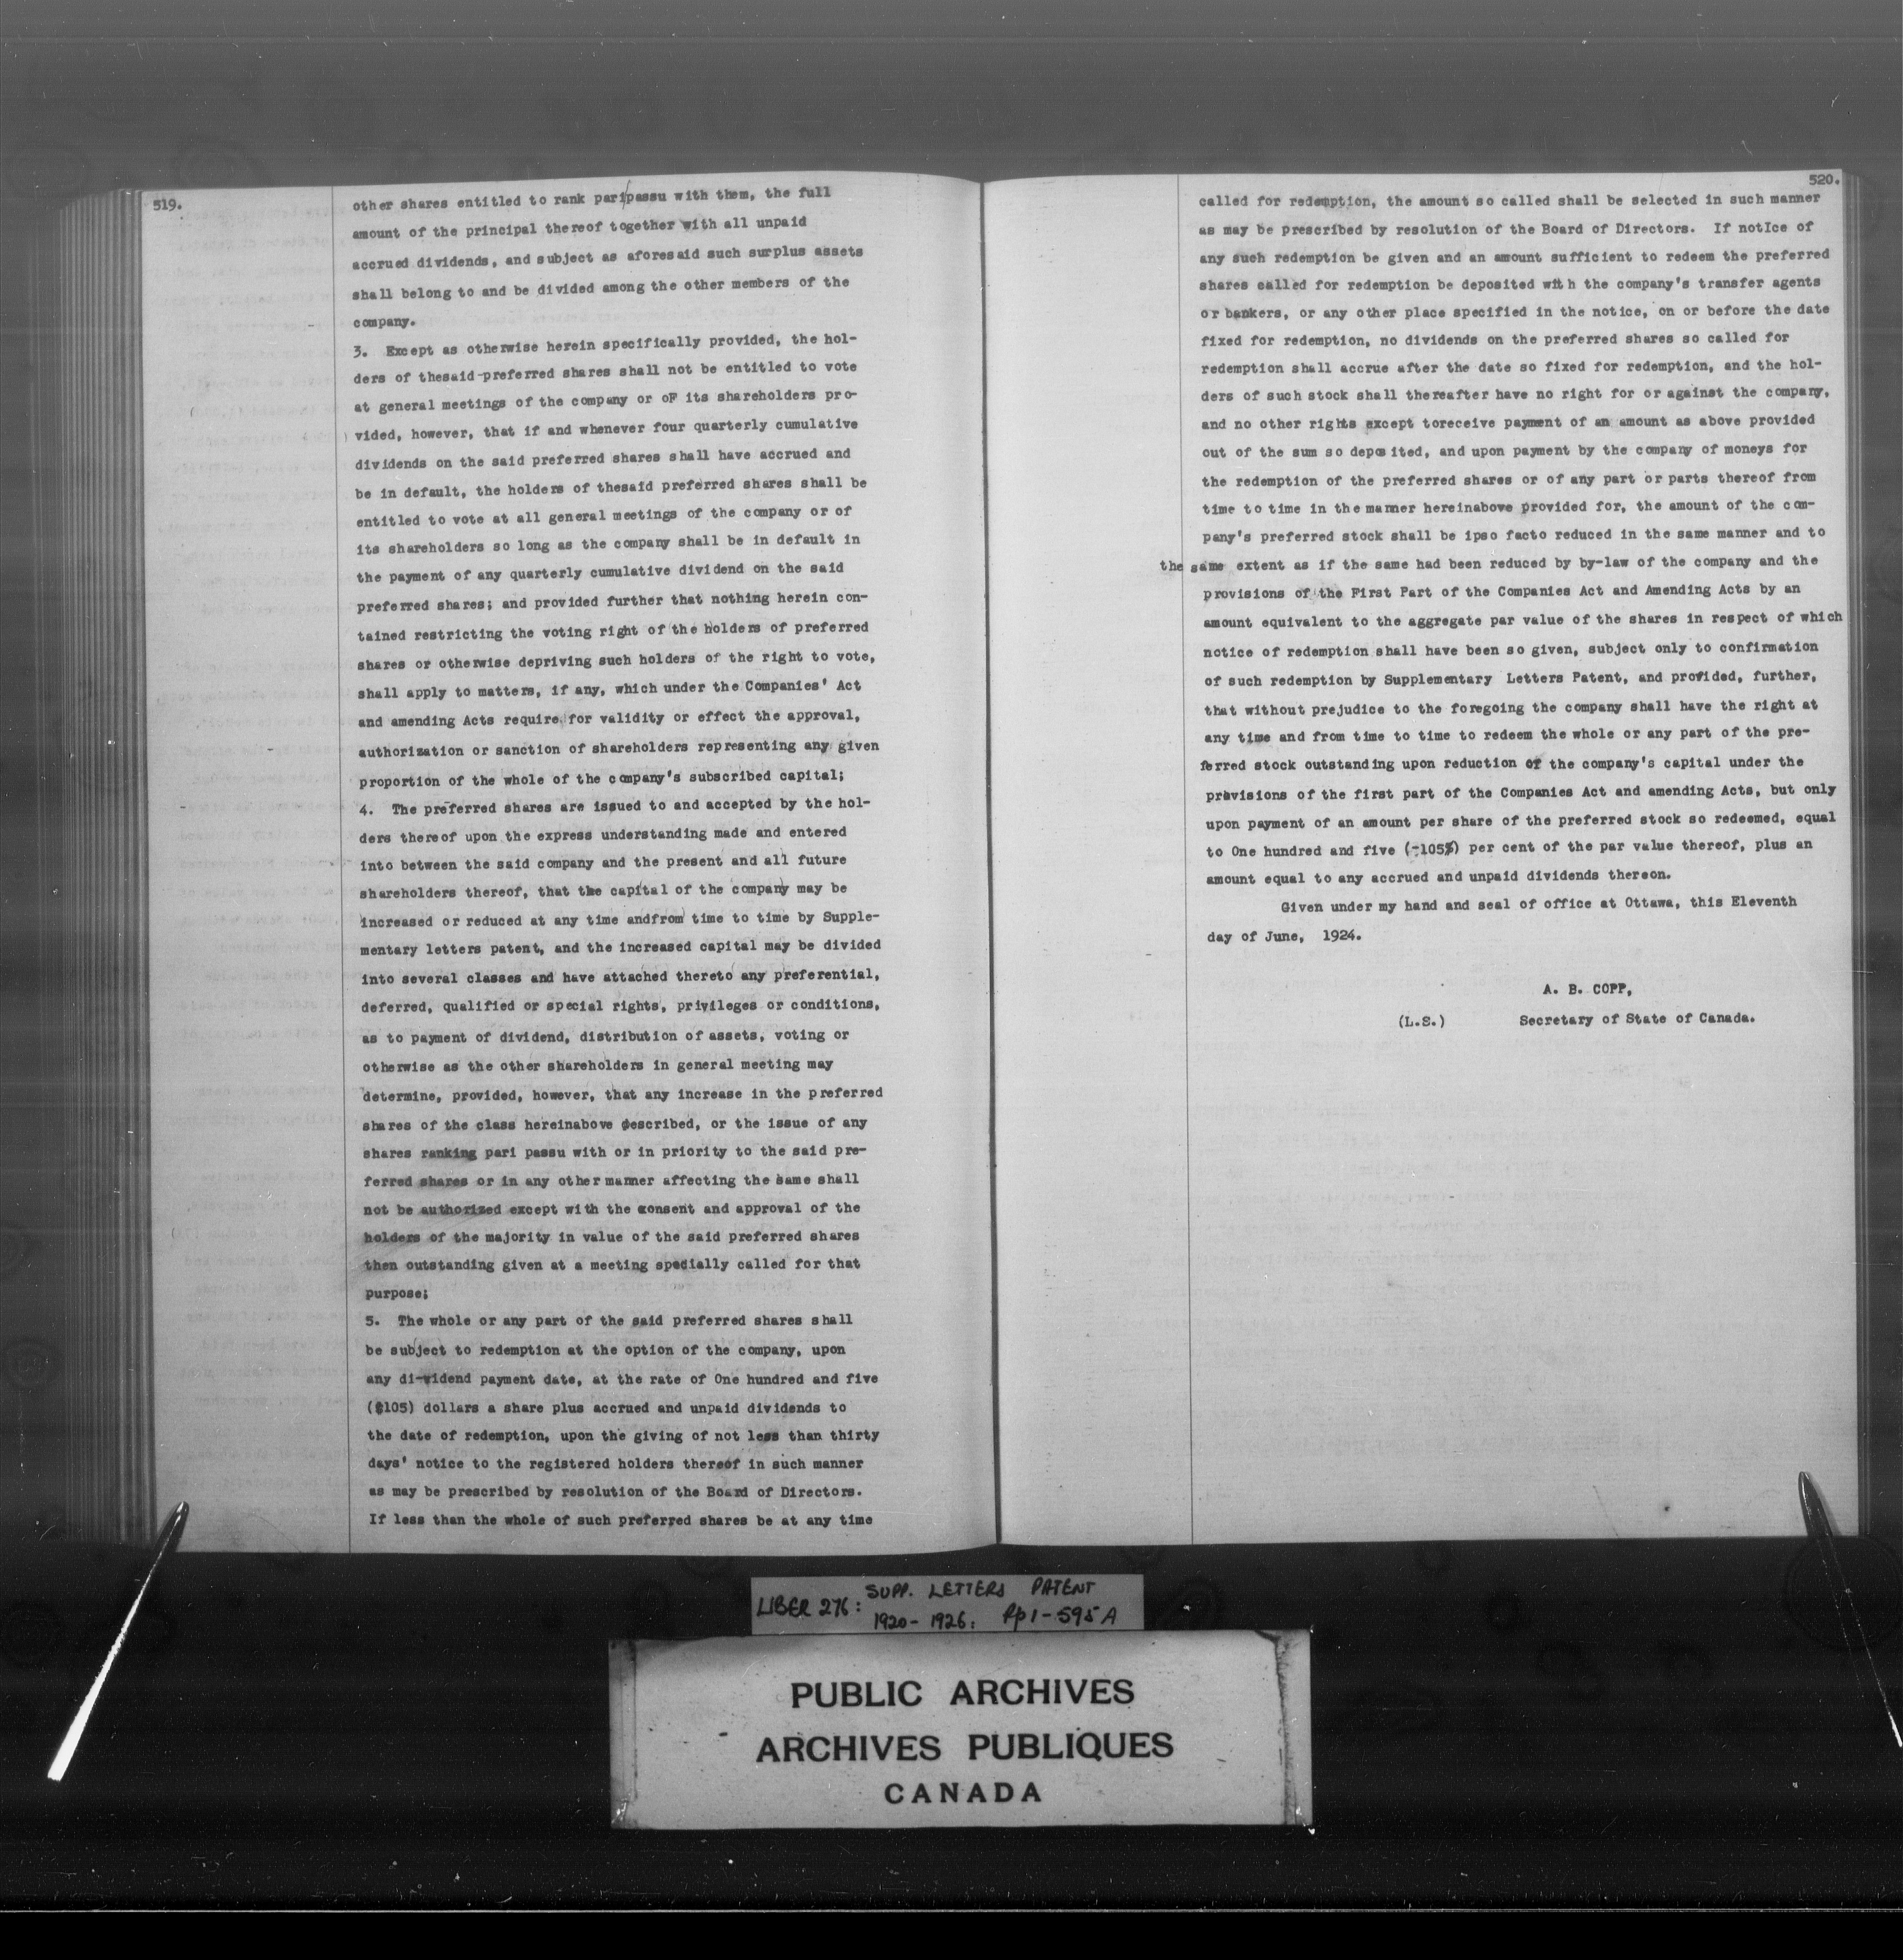 519.
other shares entitled to rank pari passu with them, the full
amount of the principal thereof together with all unpaid
accrued dividends, and subject as aforesaid such surplus assets
shall belong to and be divided among the other members of the
company.
3. Except as otherwise herein specifically provided, the hol-
ders of thesaid-preferred shares shall not be entitled to vote
at general meetings of the company or oF its shareholders pro-
vided, however, that if and whenever four quarterly cumulative
dividends on the said preferred shares shall have accrued and
be in default, the holders of thesaid preferred shares shall be
entitled to vote at all general meetings of the company or of
its shareholders so long as the company shall be in default in
the payment of any quarterly cumulative dividend on the said
preferred shares; and provided further that nothing herein con-
tained restricting the voting right of the holders of preferred
shares or otherwise depriving such holders of the right to vote,
shall apply to matters, if any, which under the Companies' Act
and amending Acts require for validity or effect the approval,
authorization or sanction of shareholders representing any given
proportion of the whole of the company's subscribed capital;
4. The preferred shares are issued to and accepted by the hol-
ders thereof upon the express understanding made and entered
into between the said company and the present and all future
shareholders thereof, that the capital of the company may be
increased or reduced at any time andfrom time to time by Supple-
mentary letters patent, and the increased capital may be divided
into several classes and have attached thereto any preferential,
deferred, qualified or special rights, privileges or conditions,
as to payment of dividend, distribution of assets, voting or
otherwise as the other shareholders in general meeting may
determine, provided, however, that any increase in the preferred
shares of the class hereinabove described, or the issue of any
shares ranking pari passu with or in priority to the said pre-
ferred shares or in any other manner affecting the same shall
not be authorized except with the consent and approval of the
holders of the majority in value of the said preferred shares
then outstanding given at a meeting specially called for that
purpose;
5. The whole or any part of the said preferred shares shall
be subject to redemption at the option of the company, upon
any di-vidend payment date, at the rate of One hundred and five
($105) dollars a share plus accrued and unpaid dividends to
the date of redemption, upon the giving of not less than thirty
days' notice to the registered holders thereof in such manner
as may be prescribed by resolution of the Board of Directors.
If less than the whole of such preferred shares be at any time
520.
called for redemption, the amount so called shall be selected in such manner
as may be prescribed by resolution of the Board of Directors. If notIce of
any such redemption be given and an amount sufficient to redeem the preferred
shares called for redemption be deposited with the company's transfer agents
or bankers, or any other place specified in the notice, on or before the date
fixed for redemption, no dividends on the preferred shares so called for
redemption shall accrue after the date so fixed for redemption, and the hol-
ders of such stock shall thereafter have no right for or against the company,
and no other rights except toreceive payment of an amount as above provided
out of the sum so deposited, and upon payment by the company of moneys for
the redemption of the preferred shares or of any part or parts thereof from
time to time in the manner hereinabove provided for, the amount of the com-
pany's preferred stock shall be ipso facto reduced in the same manner and to
the same extent as if the same had been reduced by by-law of the company and the
provisions of the First Part of the Companies Act and Amending Acts by an
amount equivalent to the aggregate par value of the shares in respect of which
notice of redemption shall have been so given, subject only to confirmation
of such redemption by Supplementary Letters Patent, and provided, further,
that without prejudice to the foregoing the company shall have the right at
any time and from time to time to redeem the whole or any part of the pre-
ferred stock outstanding upon reduction of the company's capital under the
provisions of the first part of the Companies Act and amending Acts, but only
upon payment of an amount per share of the preferred stock so redeemed, equal
to One hundred and five (-105%) per cent of the par value thereof, plus an
amount equal to any accrued and unpaid dividends thereon.
Given under my hand and seal of office at Ottawa, this Eleventh
day of June, 1924.
A. B. COPP,
(L.S.) Secretary of State of Canada.
LIBER 276: SUPP. LETTERS PATENT
1920-1926: Pp 1-595A
PUBLIC ARCHIVES
ARCHIVES PUBLIQUES
CANADA